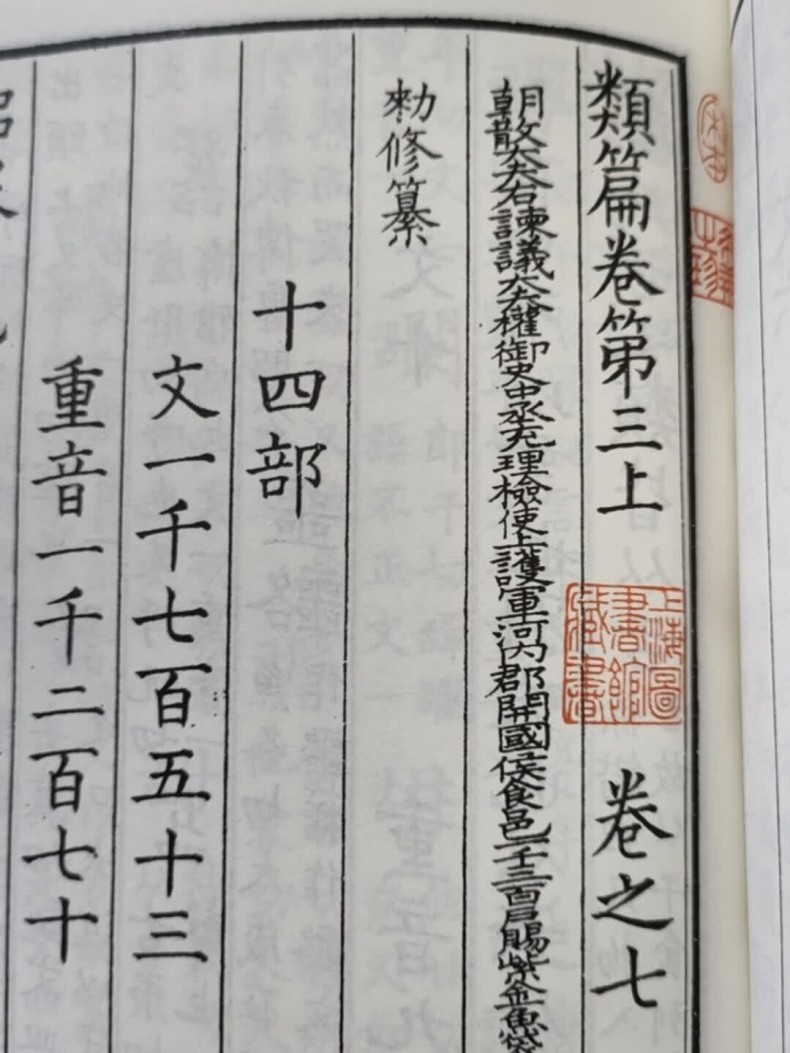 類篇卷第三上 卷之七
朝散大夫右諫議大夫權御史中丞充理檢使上護軍河內郡開國侯食邑一千三百戶賜紫金魚袋
勑修纂
十四部
文一千七百五十三
重音一千二百七十
上海圖書館藏書